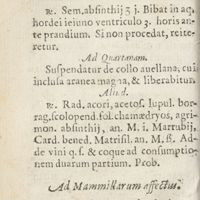 ℞. Sem. absinthij ʒ j. Bibat in aq.
hordei ieiuno ventriculo 3. horis an-
te prandium. Si non procedat, reite-
retur.
Ad Quartanam.
Suspendatur de collo avellana, cui in-
clusa aranea magna, & liberabitur.
Aliud.
℞. Rad. acori, acetos. lupul. bor-
rag. scolopend. fol. chamædryos, agri-
mon. absinthij, an. M. i. Marrubij,
Card. bened. Matrisil. an. M. ß. Ad-
de vini q. s. & coque ad consumptio-
nem duarum partium. Prob.
Ad Mammillarum affectus.